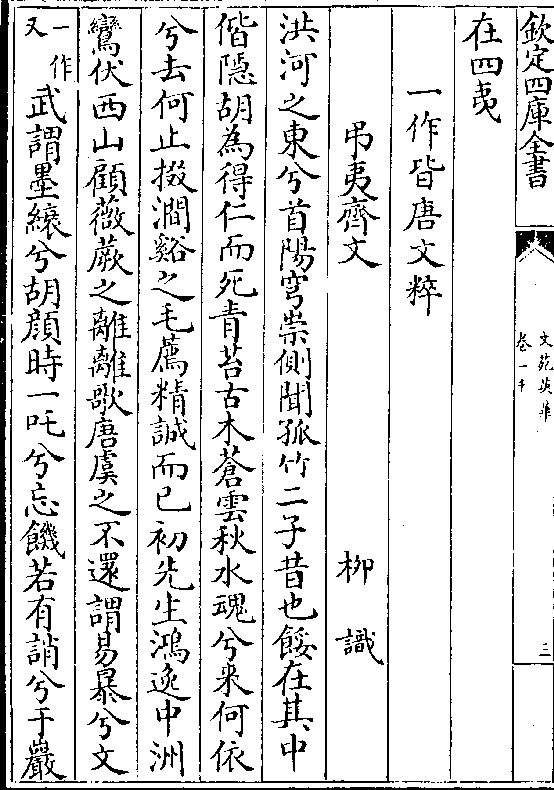 欽定四庫全書
文苑英華
卷一千
三
在四夷
一作皆唐文粹
弔夷齊文 柳識
洪河之東兮首陽穹崇側聞孤竹二子昔也餒在其中
偕隱胡為得仁而死青苔古木蒼雲秋水魂兮來何依
兮去何止掇澗谿之毛薦精誠而已初先生鴻逸中洲
鸞伏西山顧薇蕨之離離歌唐虞之不還謂易暴兮文
一作又武謂墨縗兮胡顔時一吒兮忘饑若有誚兮于巖